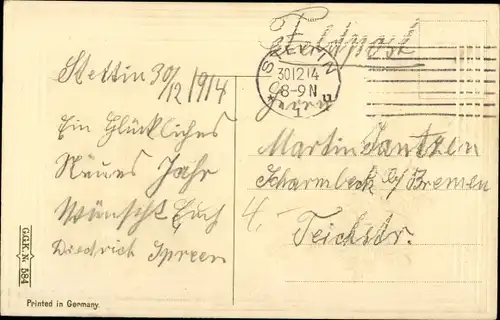 Feldpost
STETTIN
30 12 14
8-9 N
* 1 n
Stettin 30/12 1914
Ein Glückliches
Neues Jahr
Wünscht Euch
Diedrich Ipreen
Herrn
Martin Jantzen
Scharmbeck b/ Bremen
4. Teichstr.
G.G.K. No 584
Printed in Germany.